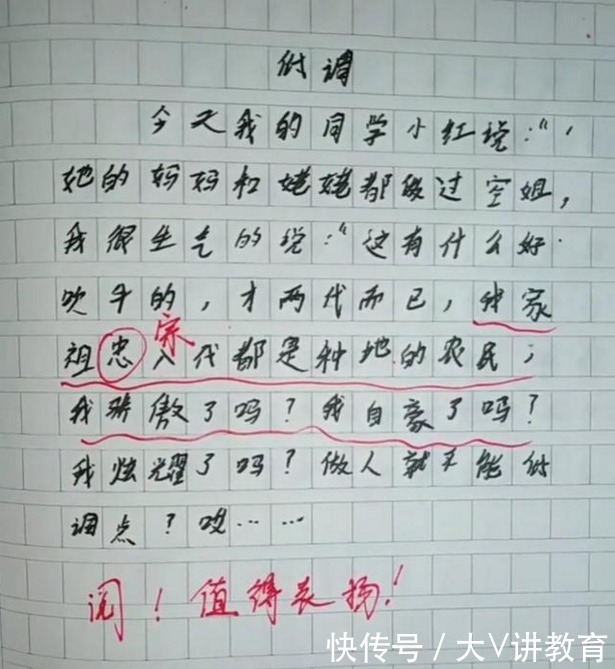 低调
今天我的同学小红说:“,
她的妈妈和姥姥都做过空姐,
我很生气的说:“这有什么好
吹牛的,才两代而已,我家
祖忠八代都是种地的农民,
宗
我骄傲了吗?我自豪了吗?
我炫耀了吗?做人就不能低
调点?哎……
阅!值得表扬!
快传号/大V讲教育